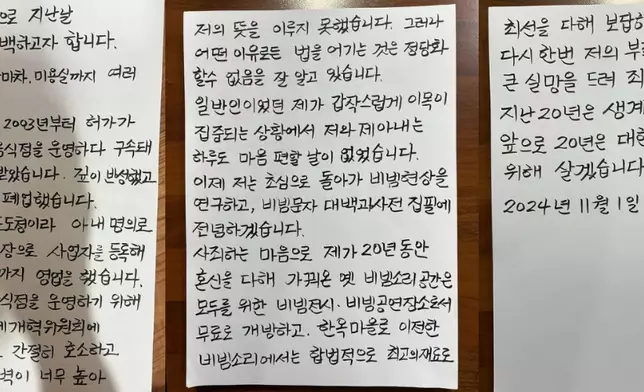 으로 지난날
백하고자 합니다.
마차, 미용실까지 여러
2003년부터 허가가
음식점을 운영하다 구속돼
받았습니다. 깊이 반성했고
폐업했습니다.
도형이라 아내 명의로
장으로 사업자를 등록해
까지 영업을 했습니다.
식점을 운영하기 위해
제개혁위원회에
간절히 호소하고
벽이 너무 높아
저의 뜻을 이루지 못했습니다. 그러나
어떤 이유로든 법을 어기는 것은 정당화
할수 없음을 잘 알고 있습니다.
일반인이었던 제가 갑작스럽게 이목이
집중되는 상황에서 저와 제아내는
하루도 마음 편할 날이 없었습니다.
이제 저는 초심으로 돌아가 비빔현상을
연구하고, 비빔문자 대백과사전 집필에
전념하겠습니다.
사죄하는 마음으로 제가 20년 동안
혼신을 다해 가꿔온 옛 비빔소리 공간은
모두를 위한 비빔전시·비빔공연장소로서
무료로 개방하고, 한옥마을로 이전한
비빔소리에서는 합법적으로 최고의재료로
최선을 다해 보답하
다시한번 저의 부
큰 실망을 드려 죄
지난20년은 생계
앞으로 20년은 대한
위해 살겠습니다
2024년 11월 1일